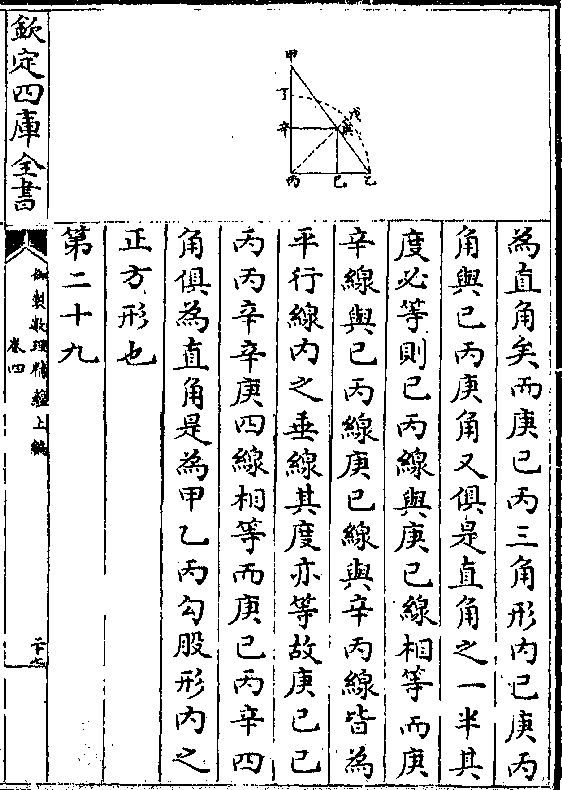 甲
丁
辛
戊
庚
丙
己
乙
為直角矣而庚己丙三角形内己庚丙
角與己丙庚角又俱是直角之一半其
度必等則己丙線與庚己線相等而庚
辛線與己丙線庚己線與辛丙線皆為
平行線内之垂線其度亦等故庚己己
丙丙辛辛庚四線相等而庚己丙辛四
角俱為直角是為甲乙丙勾股形内之
正方形也
第二十九
欽定四庫全書
御製數理精蘊上編
卷四